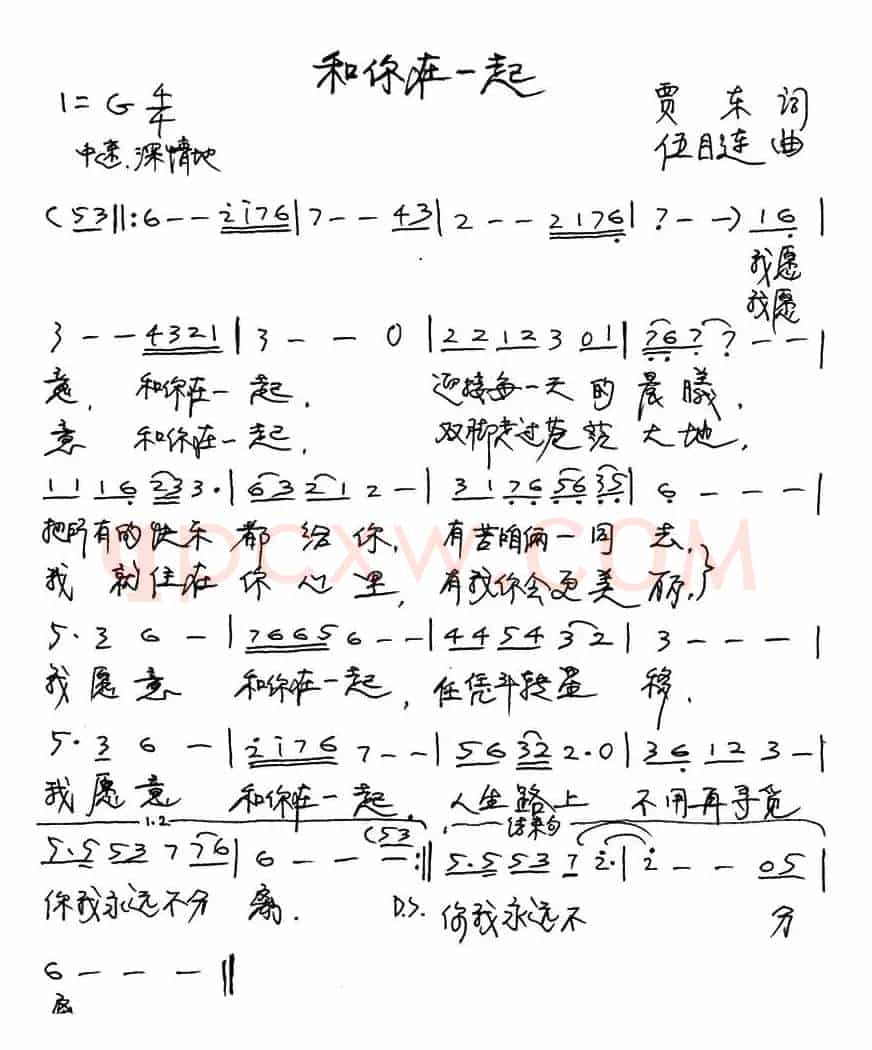 和你在一起
1=G 4/4
贾东词
中速.深情地
伍目连曲
(53||:6--2̇1̇76|7--43|2--2176̣|7̣--)16̣|
我愿
我愿
3--4321|3--0|22123 01|7̣6̣7̣7̣--|
意,和你在一起,迎接每一天的晨曦,
意 和你在一起,双脚走过苍茫大地,
1116̣233·|6̣3212-|317̣6̣5̣6̣3̣5̣|6̣---|
把所有的快乐都给你,有苦咱俩一同去,
我就住在你心里,有我你会更美丽,}
5·36-|76656--|445432|3---|
我愿意 和你在一起,任凭斗转星移.
5·36-|2̇1̇767--|56322·0|36̣123-|
我愿意 和你在一起,人生路上 不用再寻觅
1.2 结束句
5·5 53 7 76|6--(53:||5·5 53 7 2̇·|2̇--05|
你我永远不分离. D.S. 你我永远不 分
6---||
离